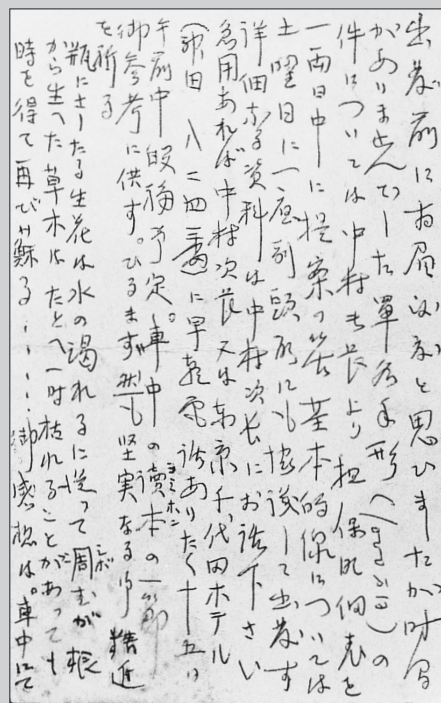 出発前にお届しようと思ひましたが時間
がありませんでした單名手形へ(まる)の
件については中村次長より担保明細表を
一両日中に提案の筈基本的線については
土曜日に一應副頭取にも協議して出発す
詳細なる資料は中村次長にお話下さい
急用あれば中村次長又は東京千代田ホテル
(神田 八二四三番)に早朝電話ありたく十五日
午前中帰福予定。車中の讀本の一節
御参考に供す。ひるまず 堅実なる御精進
を祈る
瓶にさしたる生花は水の渇れるに従って凋むが根
から生へた草木はたとへ一時枯れることがあっても
時を得て再び蘇る……御感想は。車中にて